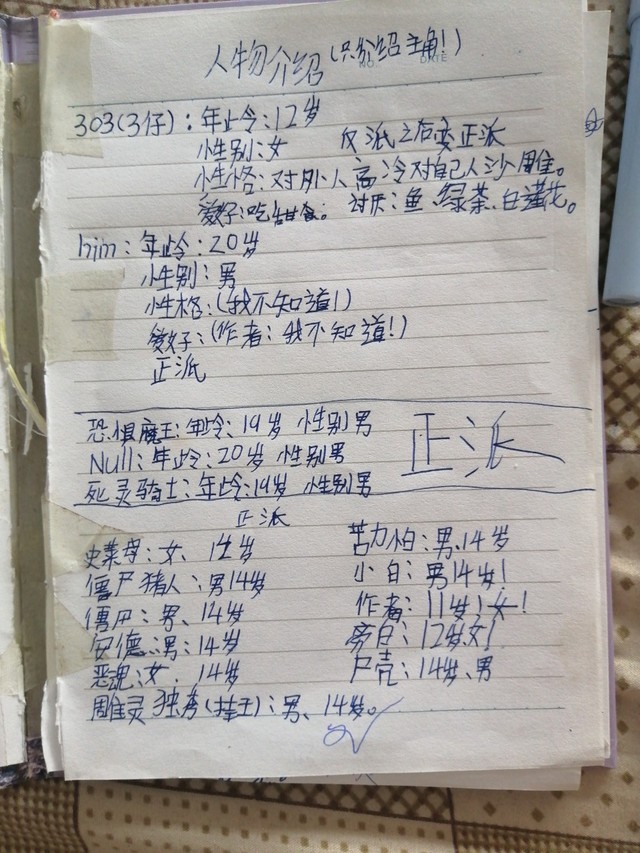 人物介绍(只介绍主角!)
NO. DATE
303(3仔):年龄:12岁
性别:女 反派之后变正派
性格:对外人高冷对自己人沙雕。
爱好:吃甜食。讨厌:鱼、绿茶、白莲花。
him:年龄:20岁
性别:男
性格:(我不知道!)
爱好:(作者:我不知道!)
正派
恐惧魔王:年龄:19岁 性别男
Null:年龄:20岁 性别男
死灵骑士:年龄:19岁 性别男
正派
正派
史莱母:女、12岁 苦力怕:男、14岁
僵尸猪人:男14岁 小白:男14岁!
僵尸:男、14岁 作者:11岁!女!
安德:男:14岁 旁白:12岁女!
恶魂:女、14岁 尸壳:14岁、男
雕灵 独秀():男、14岁。